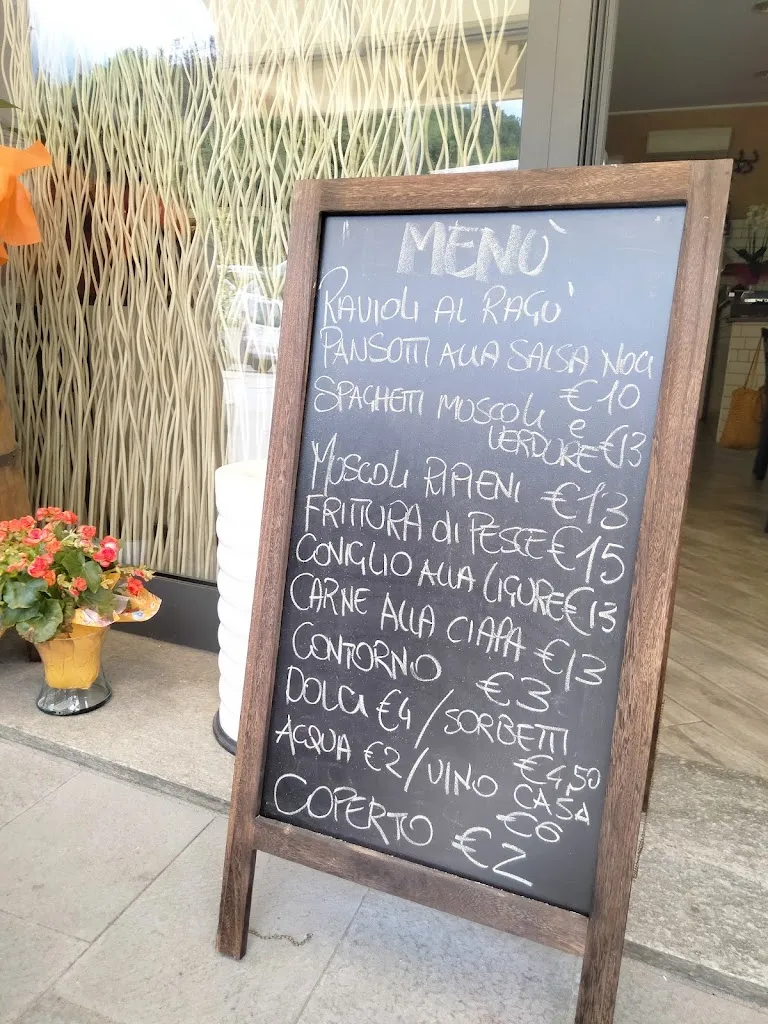 MENÙ
RAVIOLI AL RAGÙ
PANSOTTI ALLA SALSA NOCI
€10
SPAGHETTI MUSCOLI e
VERDURE €13
MUSCOLI RIPIENI €13
FRITTURA di PESCE €15
CONIGLIO ALLA LIGURE €13
CARNE ALLA CIAPA €13
CONTORNO €3
DOLCI €4/SORBETTI
€4,50
ACQUA €2/VINO CASA
€6
COPERTO €2